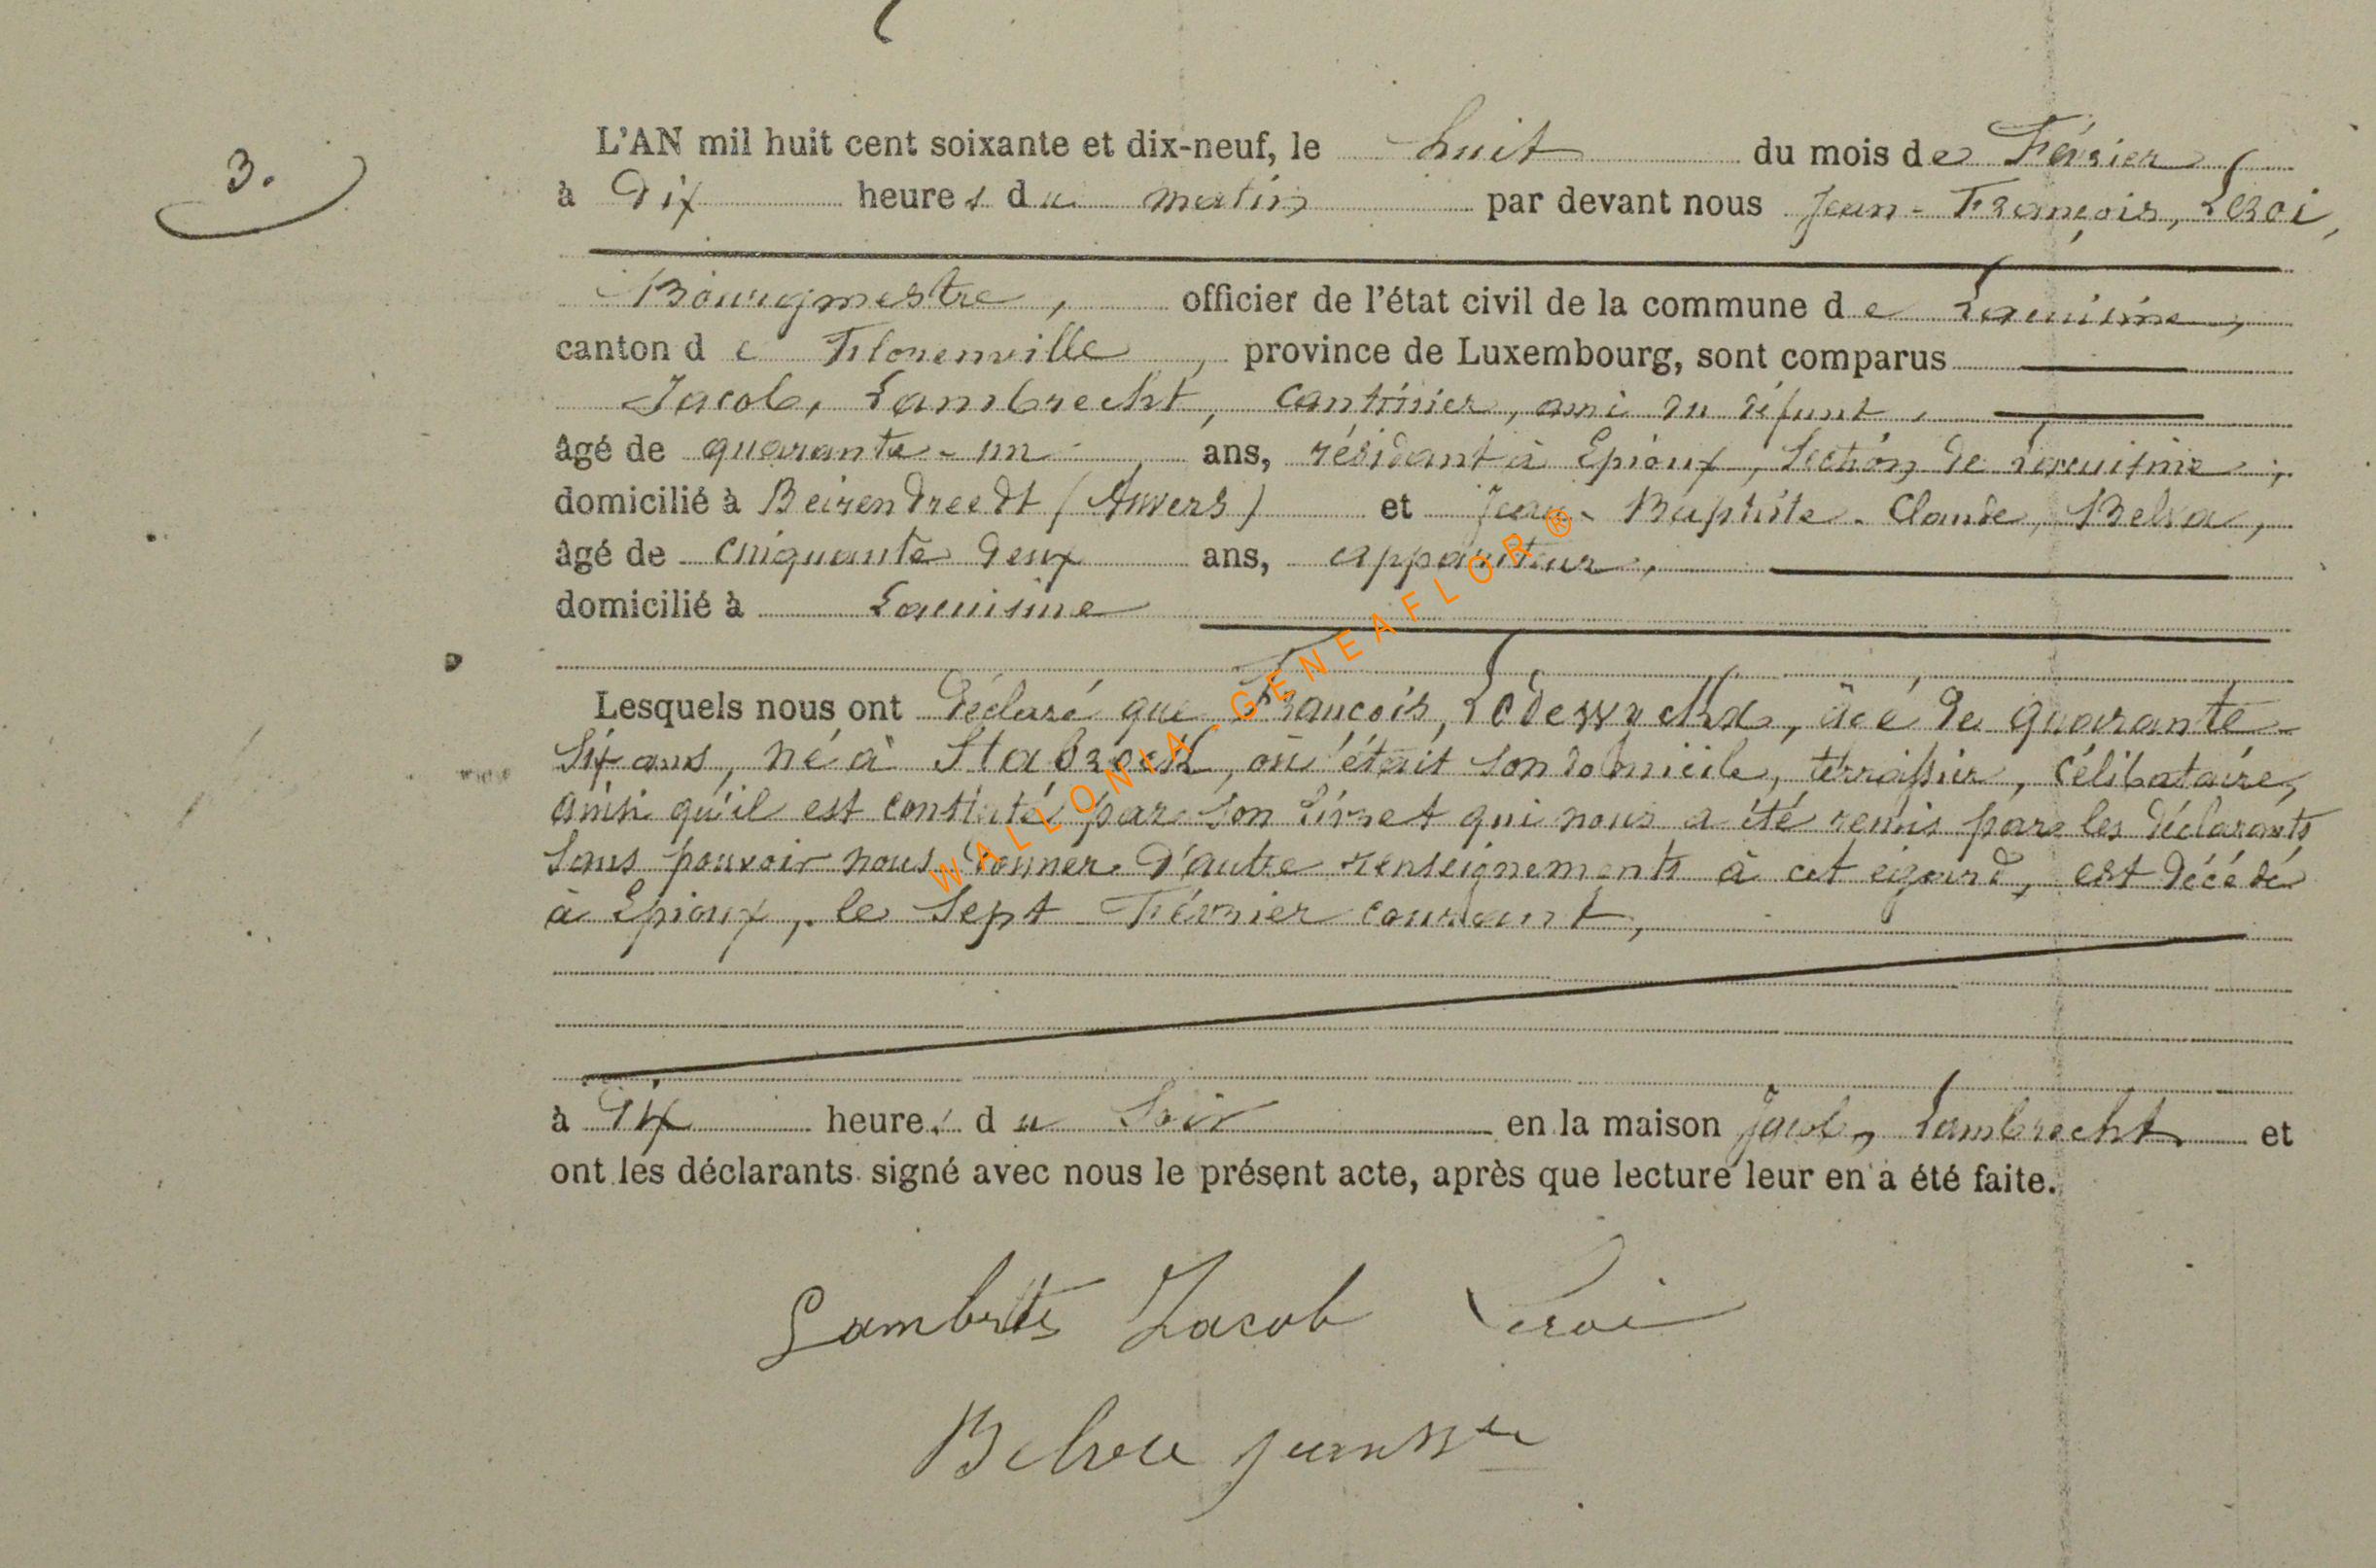 3.
L'AN mil huit cent soixante et dix-neuf, le huit du mois de Février
à dix heures du matin par devant nous Jean-François, Leroi,
Bourgmestre, officier de l'état civil de la commune de Lacuisine,
canton de Florenville, province de Luxembourg, sont comparus
Jacob, Lambrecht, cantinier, ami du défunt,
âgé de quarante-un ans, résidant à Epioux, section de Lacuisine,
domicilié à Beirendreedt (Anvers) et Jean-Baptiste-Claude, Belva,
âgé de cinquante deux ans, appariteur,
domicilié à Lacuisine
Lesquels nous ont déclaré que François, Lodewyckx, âgé de quarante-
six ans, né à Stabroeck, où était son domicile, terrassier, célibataire,
ainsi qu'il est constaté par son livret qui nous a été remis par les déclarants
sans pouvoir nous donner d'autre renseignements à cet égard, est décédé
à Epioux, le sept Février courant,
à dix heures du soir en la maison Jacob, Lambrecht et
ont les déclarants signé avec nous le présent acte, après que lecture leur en a été faite.
Jacob Leroi
WALLONIA-GENEAFLOR®